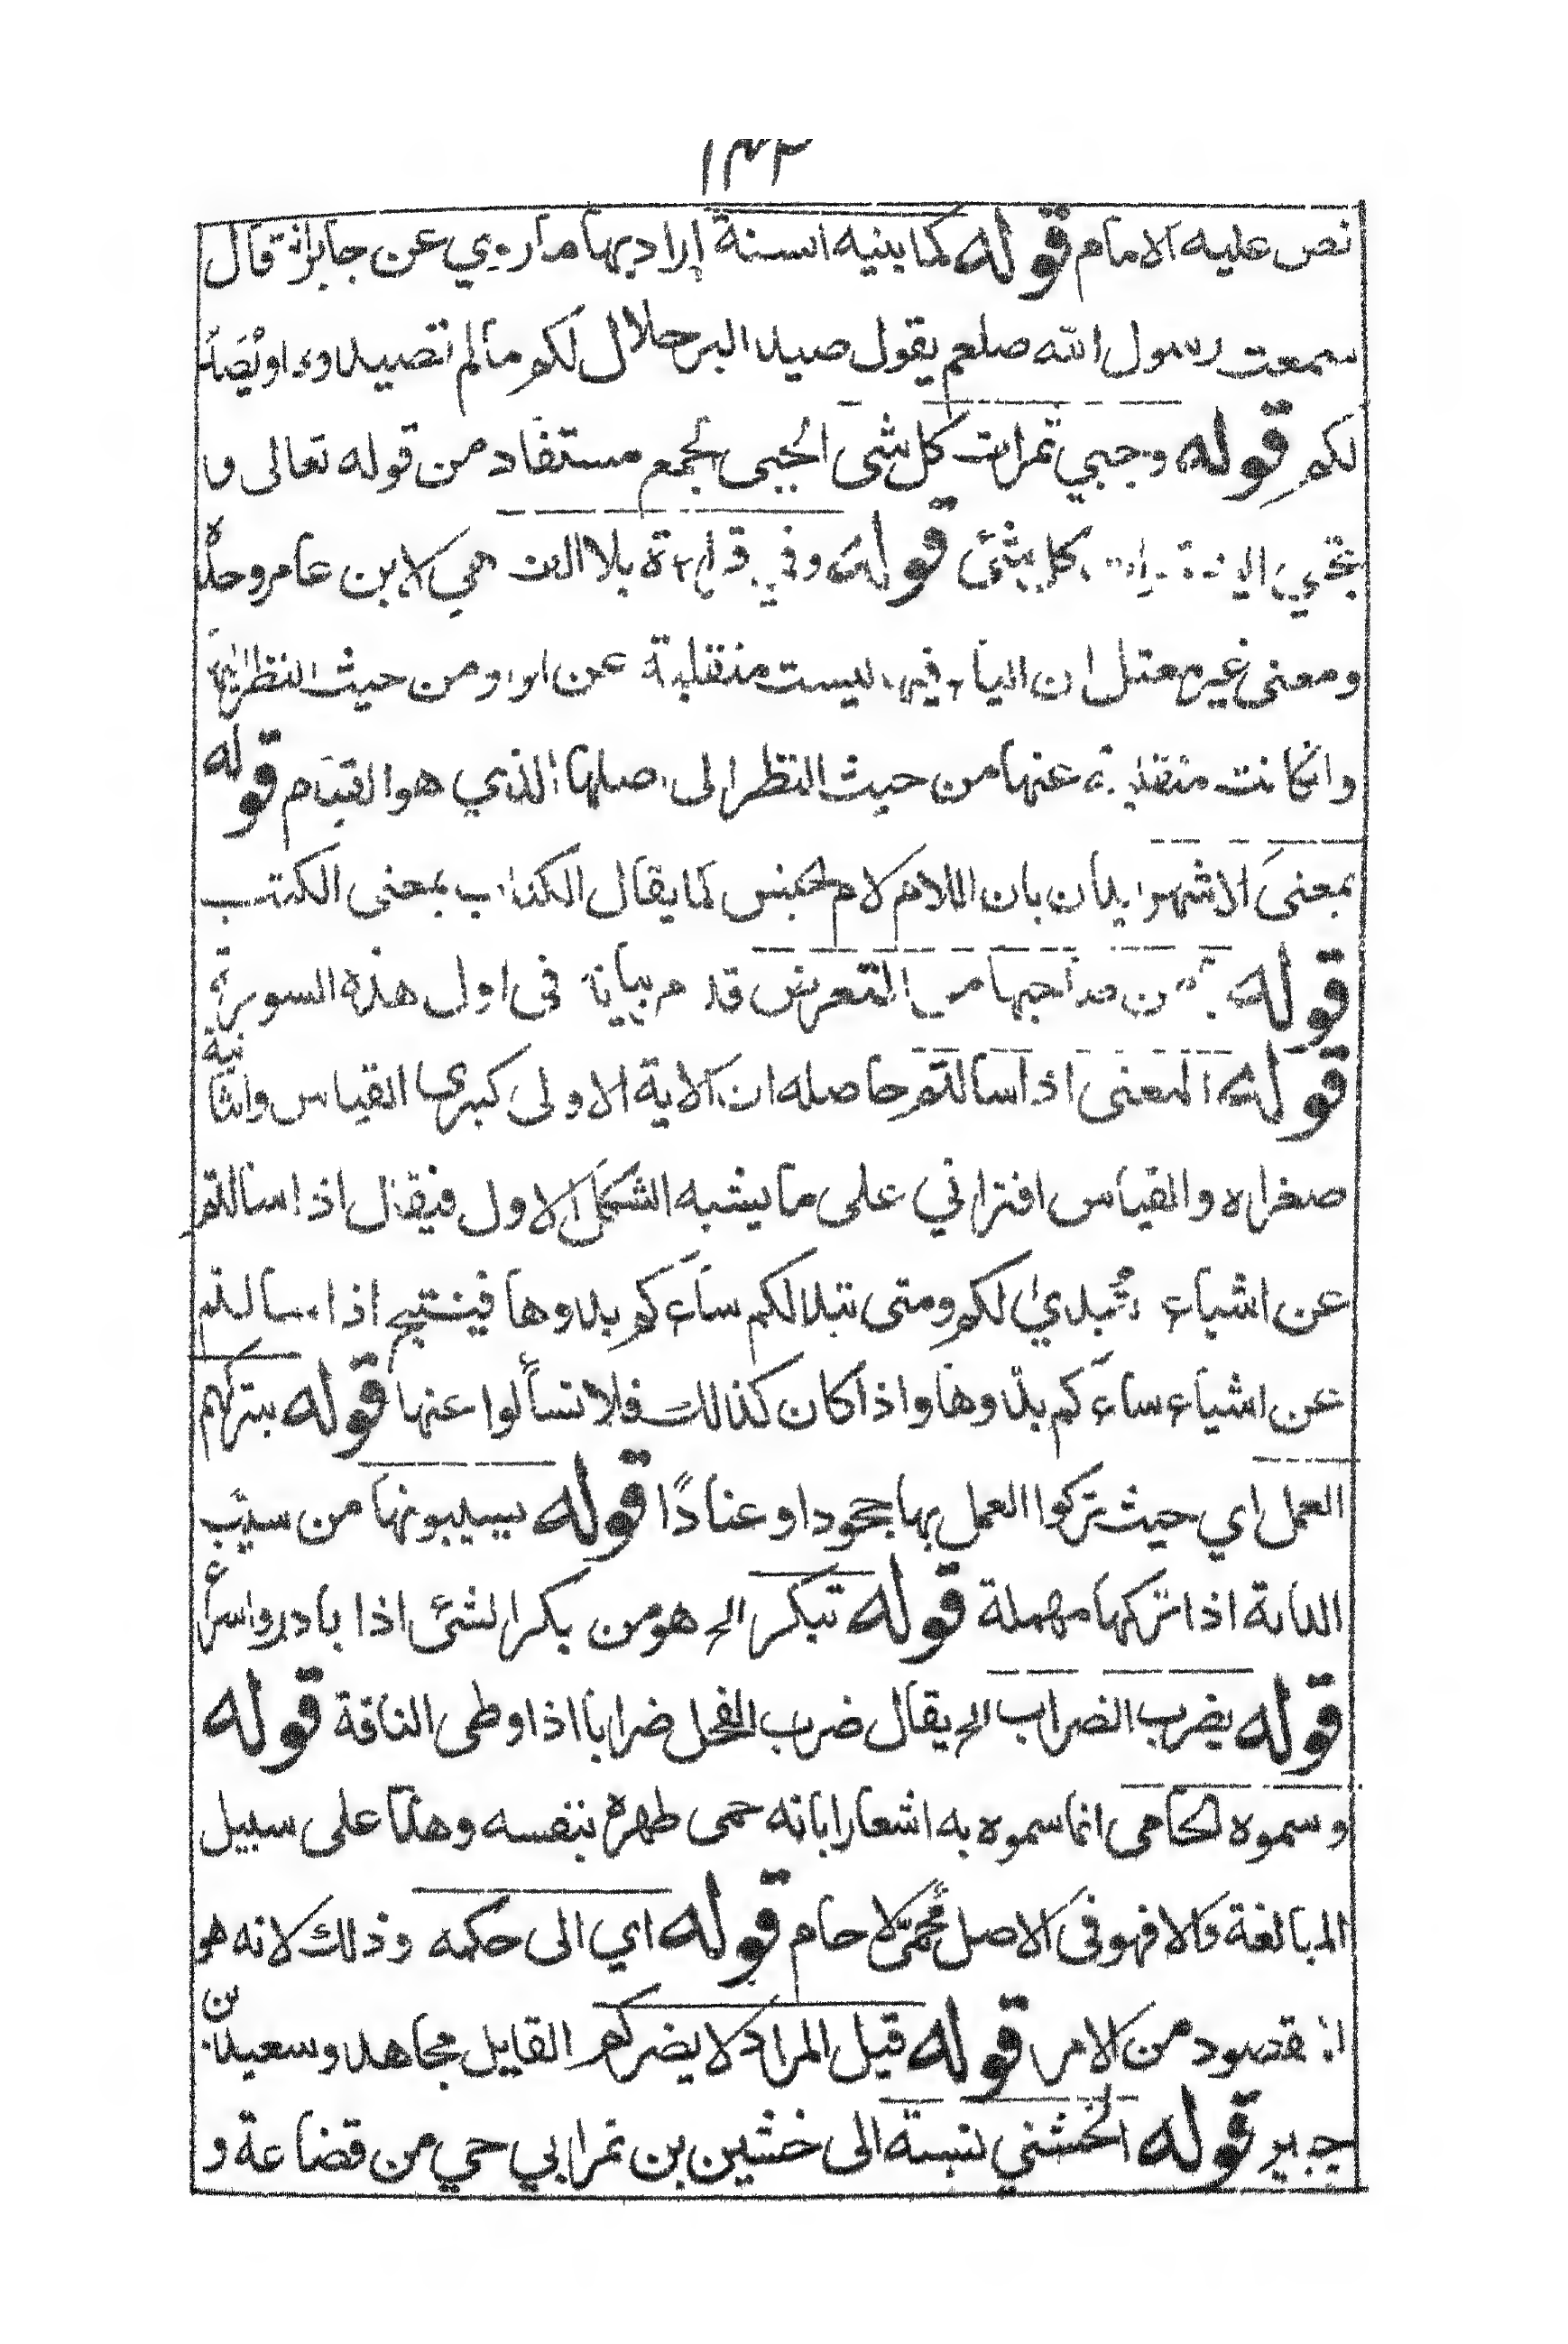 ١٣٢
نص عليه الامام قوله كما بنيه السنة اراد بها ماروي عن جابر انه قال
سمعت رسول الله صلعم يقول صيد البر حلال لكم مالم تصيدوه او يُصَد
لكم قوله وجبي ثمرات كل شى الجبى لجمع مستفاد من قوله تعالى و
يجبي اليه كل شئ قوله وفي قراءة بلا الف هي لابن عامر وحده
ومعنى غير معتل ان الياء فيها ليست منقلبة عن الواو من حيث النظر اليها
وانكانت منقلبة عنها من حيث النظر الى اصلها الذي هو القيام قوله
بمعنى الاشهر ايذان بان اللام لام الجنس كما يقال الكتاب بمعنى الكتب
قوله من صاحبها من التعرض قد مر بيانه فى اول هذه السورة
قوله المعنى اذا سالتم حاصله ان الاية الاولى كبرى القياس والثانية
صغراه والقياس اقتراني على ما يشبه الشكل الاول فيقال اذا سالتم
عن اشياء تُبدي لكم ومتى تبدا لكم ساءكم بدوها فينتج اذا سالتم
عن اشياء ساءكم بدوها واذا كان كذالك فلا تسألوا عنها قوله بتركهم
العمل اي حيث تركوا العمل بها جحودا وعنادًا قوله يسيبونها من سيب
الدابة اذا تركها مهملة قوله تبكر الخ هو من بكر الشئ اذا بادر واسرع
قوله يضرب الضراب الخ يقال ضرب الفحل ضرابا اذا وطى الناقة قوله
وسموه الحامى انما سموه به اشعارا بانه حمى ظهره بنفسه وهذا على سبيل
المبالغة والا فهو فى الاصل مُحمًى لا حام قوله اي الى حكمه وذلك لانه هو
المقصود من الامر قوله قيل المراد لا يضركم القايل مجاهد وسعيد بن
جبير قوله الخشني نسبة الى خشين بن نمر ابي حي من قضاعة و